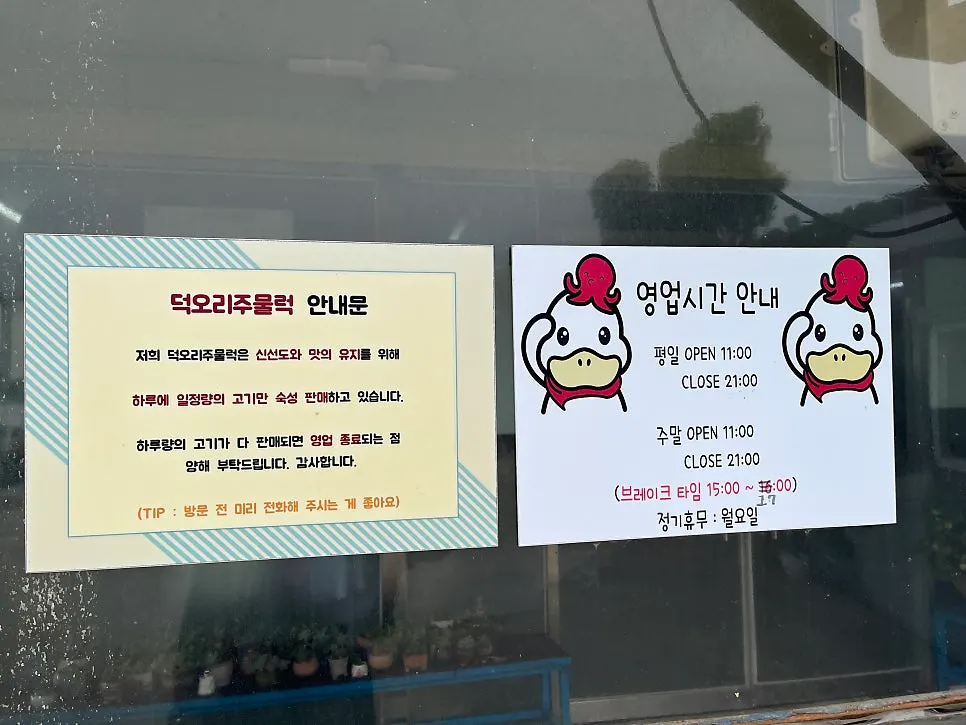 덕오리주물럭 안내문
저희 덕오리주물럭은 신선도와 맛의 유지를 위해
하루에 일정량의 고기만 숙성 판매하고 있습니다.
하루량의 고기가 다 판매되면 영업 종료되는 점
양해 부탁드립니다. 감사합니다.
(TIP : 방문 전 미리 전화해 주시는 게 좋아요)
영업시간 안내
평일 OPEN 11:00
CLOSE 21:00
주말 OPEN 11:00
CLOSE 21:00
(브레이크 타임 15:00 ~ 16:00)
17
정기휴무 : 월요일